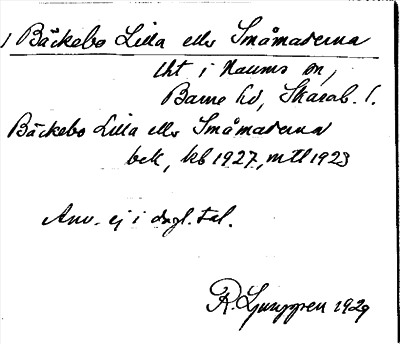 1 Bäckebo Lilla eller Småmaderna
lht i Naums sn,
Barne hd, Skarab. l.
Bäckebo Lilla eller Småmaderna
bek, kb 1927, mtl 1923
Anv. ej i dagl. tal.
R. Ljunggren 1929